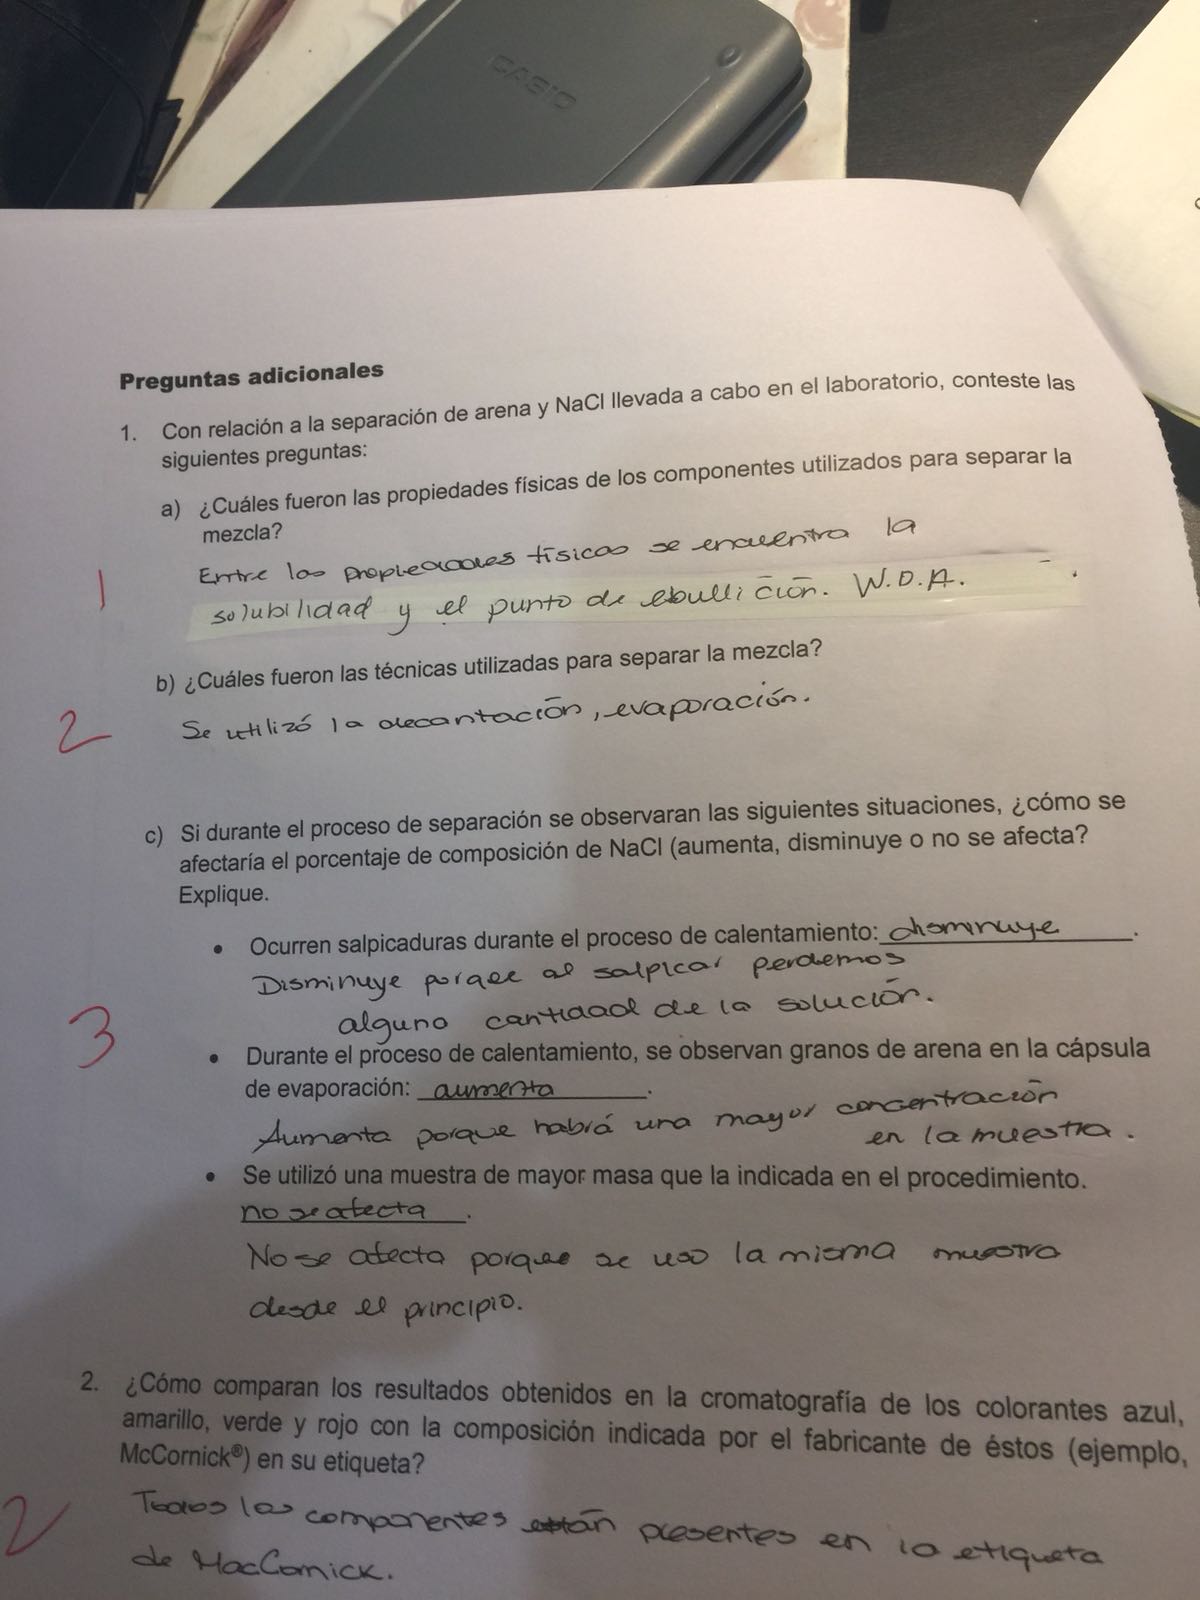 CASIO
Preguntas adicionales
1. Con relación a la separación de arena y NaCl llevada a cabo en el laboratorio, conteste las
siguientes preguntas:
a) ¿Cuáles fueron las propiedades físicas de los componentes utilizados para separar la
mezcla?
Entre las propiedades físicas se encuentra la
1
solubilidad y el punto de ebullición. W.D.A.
b) ¿Cuáles fueron las técnicas utilizadas para separar la mezcla?
2
Se utilizó la decantación, evaporación.
c) Si durante el proceso de separación se observaran las siguientes situaciones, ¿cómo se
afectaría el porcentaje de composición de NaCl (aumenta, disminuye o no se afecta?
Explique.
• Ocurren salpicaduras durante el proceso de calentamiento: disminuye.
Disminuye porque al salpicar perdemos
alguno cantidad de la solución.
3
• Durante el proceso de calentamiento, se observan granos de arena en la cápsula
de evaporación: aumenta.
Aumenta porque habrá una mayor concentración
en la muestra.
• Se utilizó una muestra de mayor masa que la indicada en el procedimiento.
no se afecta.
No se afecta porque se uso la misma muestra
desde el principio.
2. ¿Cómo comparan los resultados obtenidos en la cromatografía de los colorantes azul,
amarillo, verde y rojo con la composición indicada por el fabricante de éstos (ejemplo,
McCornick®) en su etiqueta?
2
Todos los componentes están presentes en la etiqueta
de MacCornick.